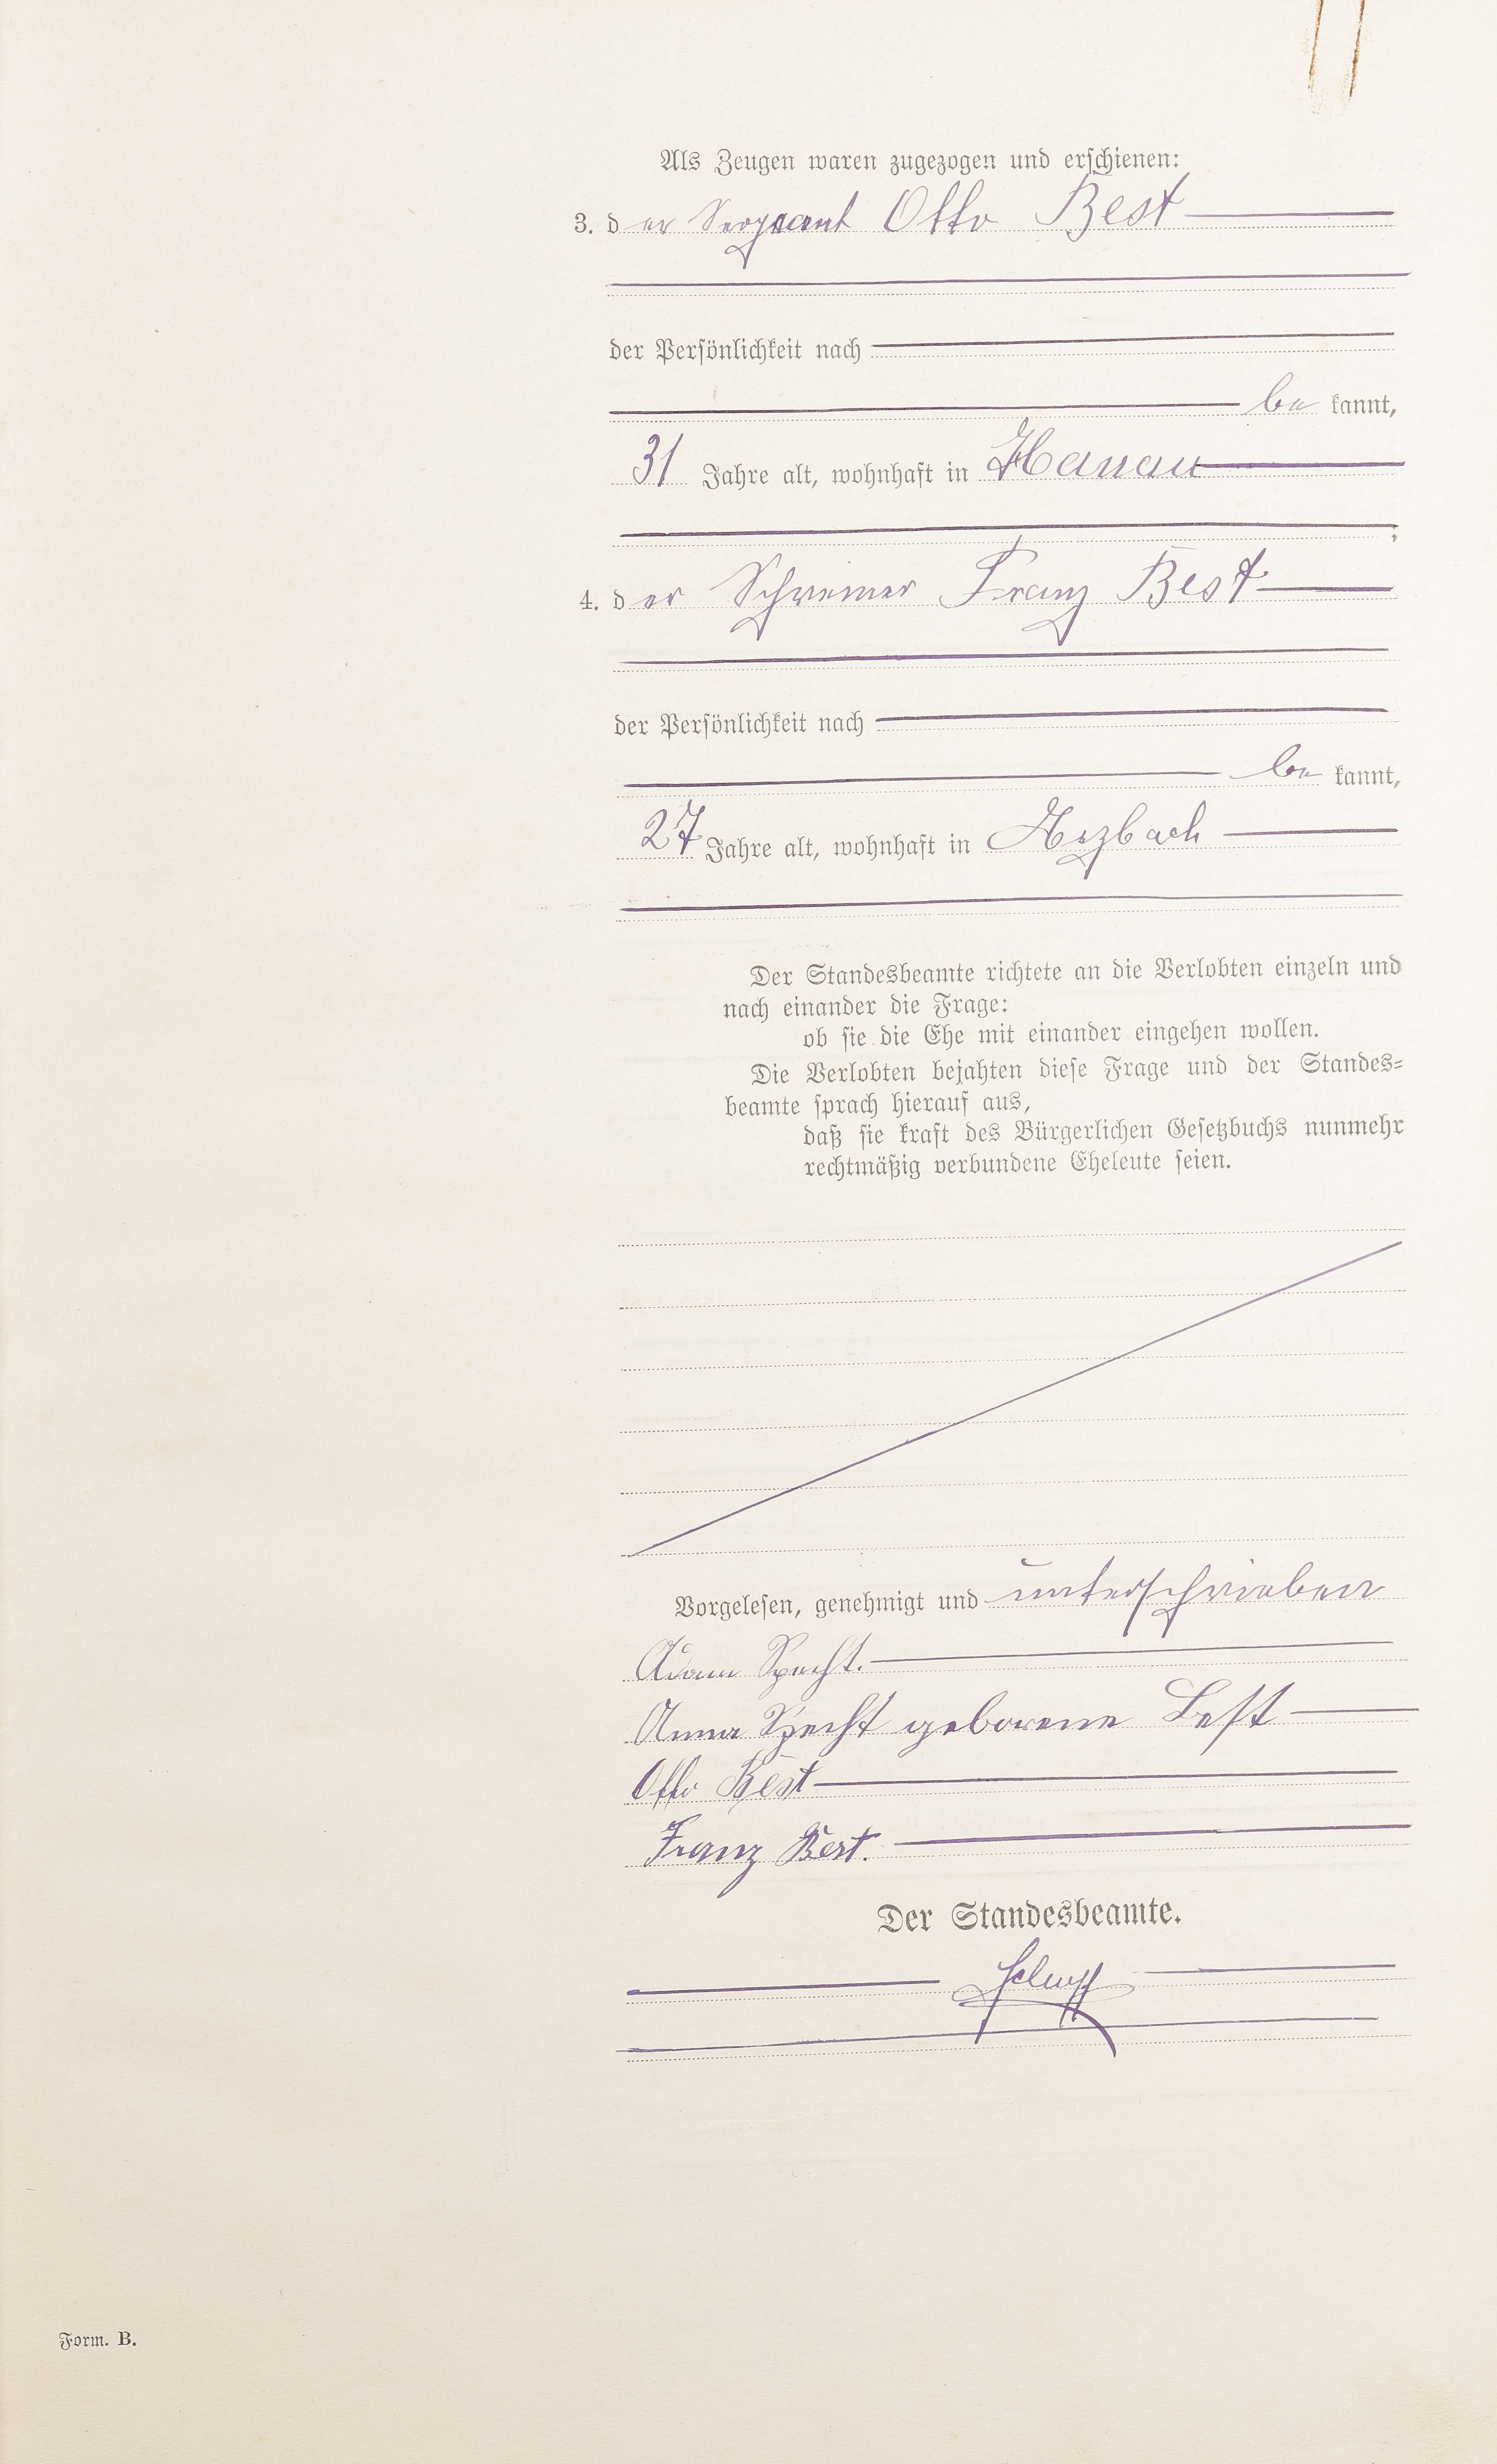 Als Zeugen waren zugezogen und erschienen:
3. der Sergeant Otto Best
der Persönlichkeit nach
be kannt,
31 Jahre alt, wohnhaft in Hanau
;
4. der Schreiner Franz Best
der Persönlichkeit nach
be kannt,
27 Jahre alt, wohnhaft in
Der Standesbeamte richtete an die Verlobten einzeln und
nach einander die Frage:
ob sie die Ehe mit einander eingehen wollen.
Die Verlobten bejahten diese Frage und der Standes-
beamte sprach hierauf aus,
daß sie kraft des Bürgerlichen Gesetzbuchs nunmehr
rechtmäßig verbundene Eheleute seien.
Vorgelesen, genehmigt und unterschrieben
Adam Specht.
Anna Specht geborene Best
Otto Best
Franz Best.
Der Standesbeamte.
Form. B.